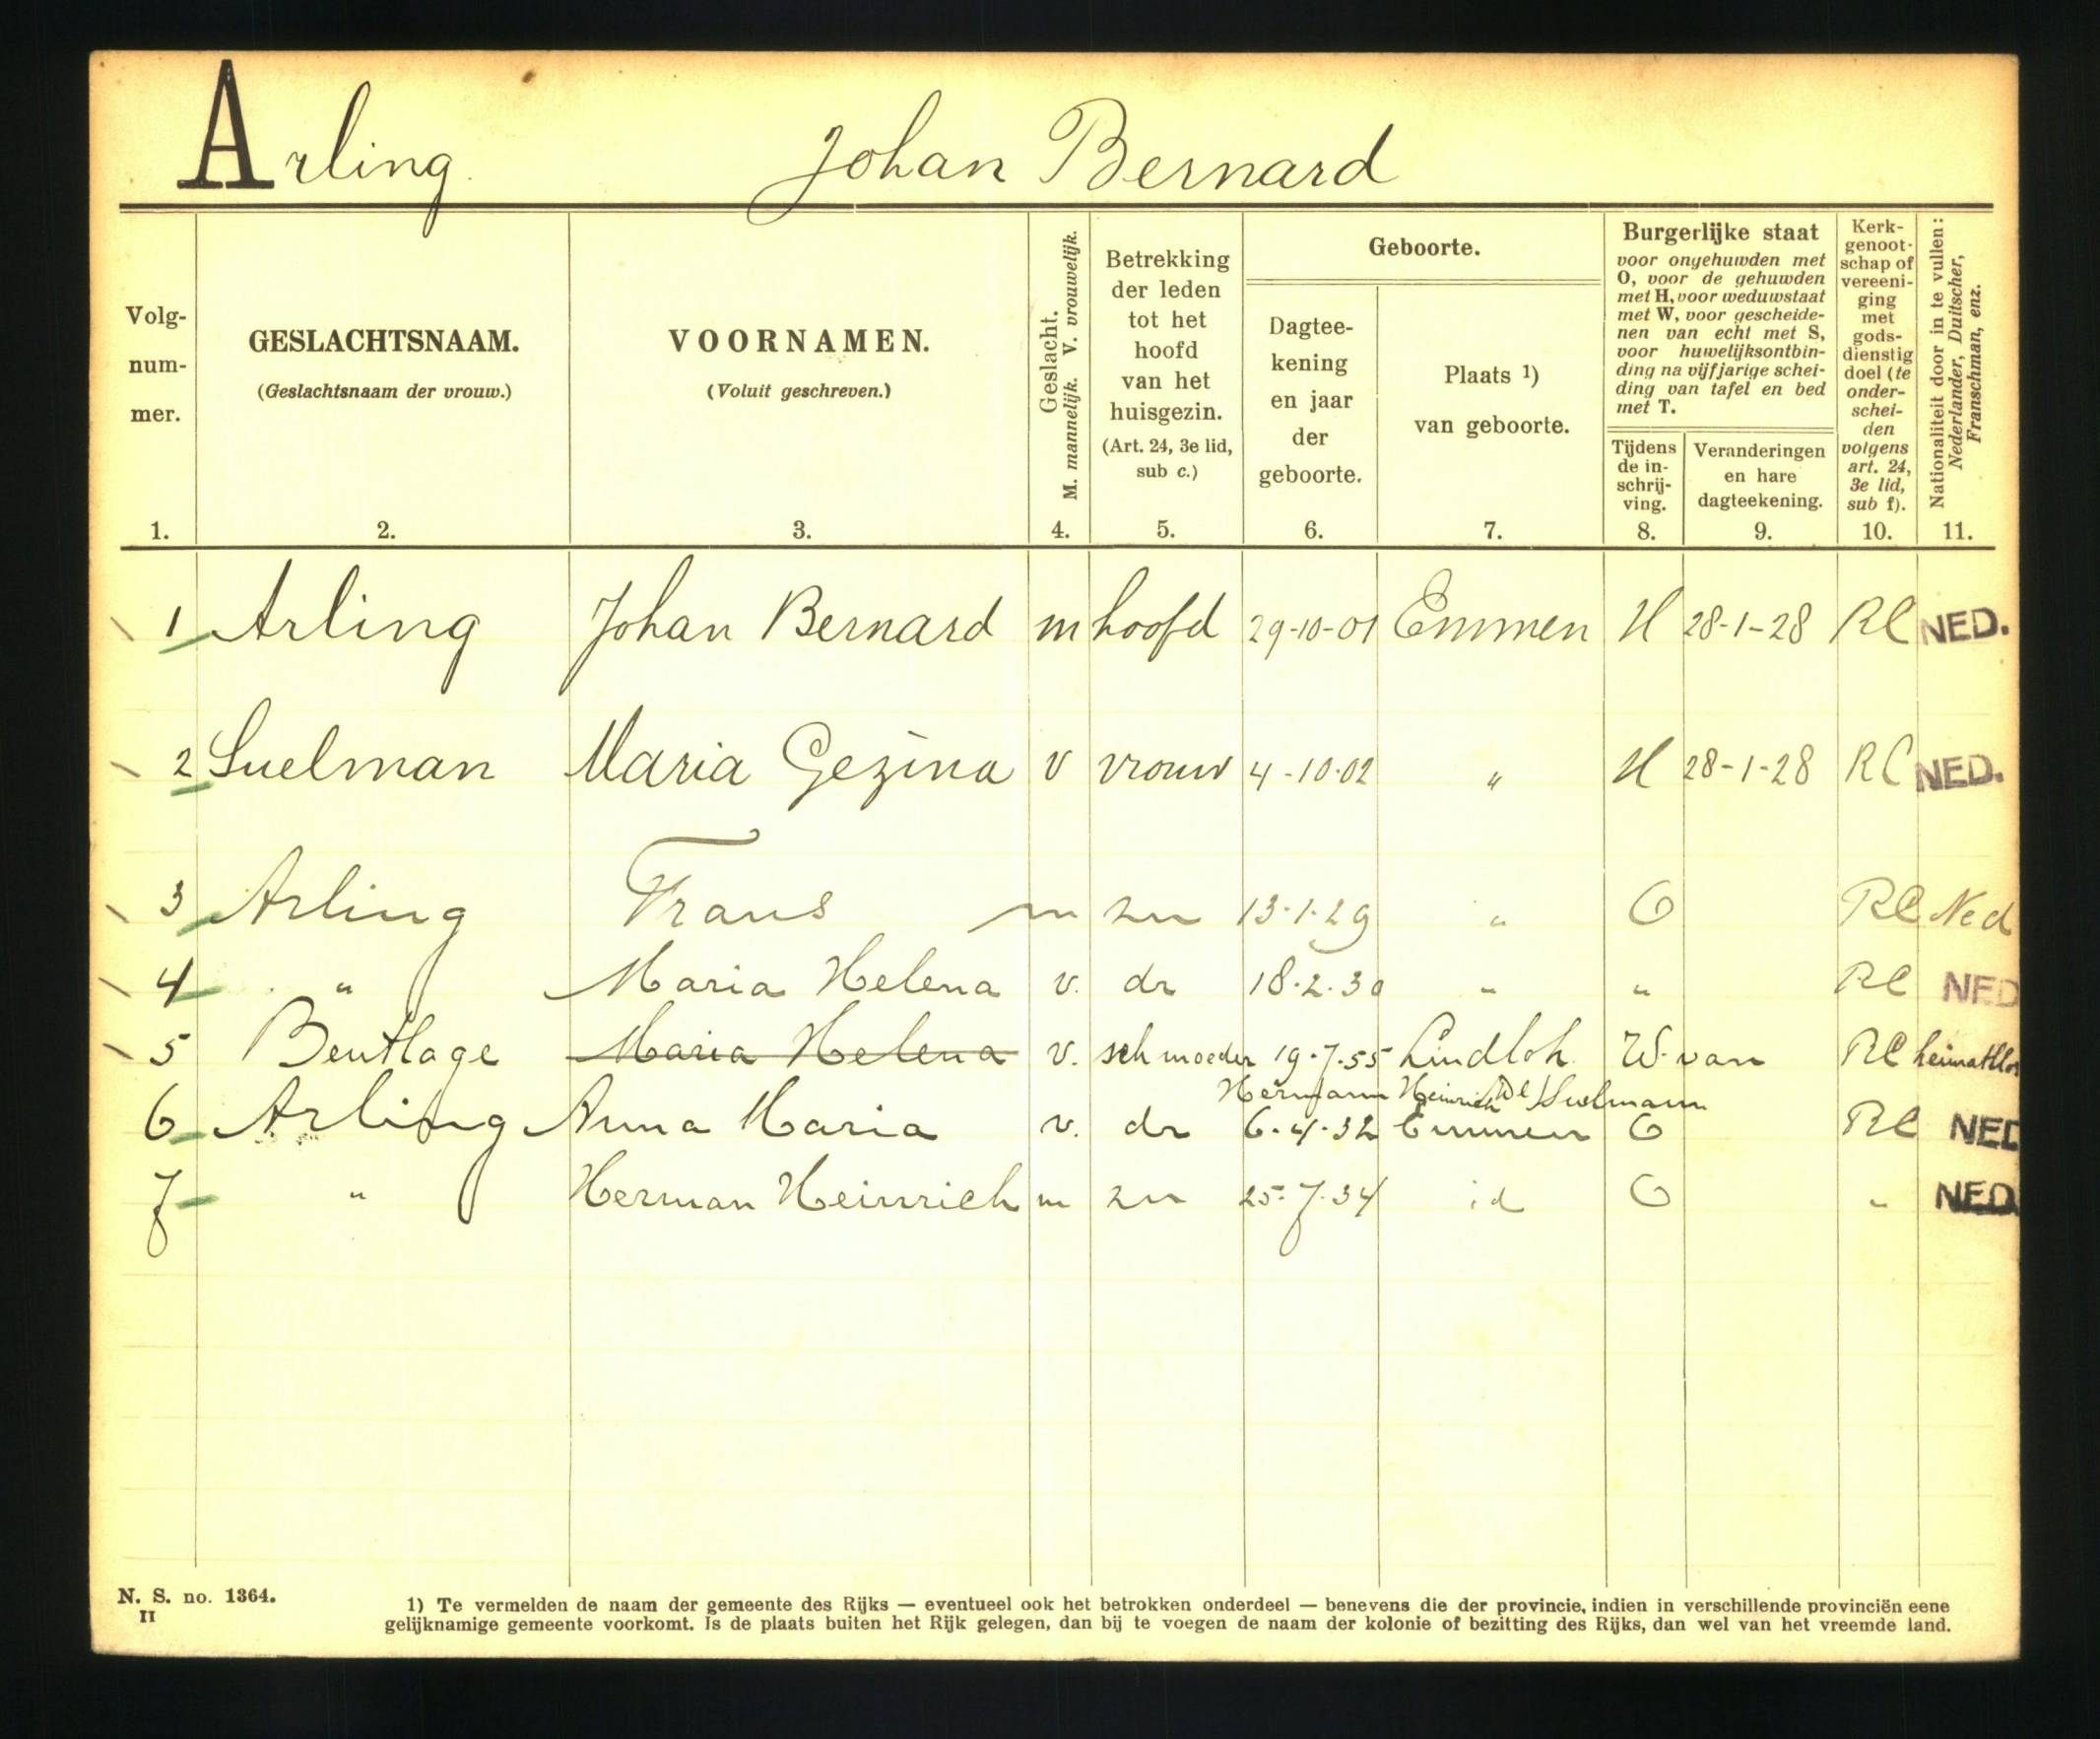 Arling Johan Bernard
Volg-
num-
mer.
1.
GESLACHTSNAAM.
(Geslachtsnaam der vrouw.)
2.
VOORNAMEN.
(Voluit geschreven.)
3.
Geslacht.
M. mannelijk. V. vrouwelijk.
4.
Betrekking
der leden
tot het
hoofd
van het
huisgezin.
(Art. 24, 3e lid,
sub c.)
5.
Geboorte.
Dagtee-
kening
en jaar
der
geboorte.
6.
Plaats 1)
van geboorte.
7.
Burgerlijke staat
voor ongehuwden met
O, voor de gehuwden
met H, voor weduwstaat
met W, voor gescheide-
nen van echt met S,
voor huwelijksontbin-
ding na vijfjarige schei-
ding van tafel en bed
met T.
Tijdens
de in-
schrij-
ving.
8.
Veranderingen
en hare
dagteekening.
9.
Kerk-
genoot-
schap of
vereeni-
ging
met
gods-
dienstig
doel (te
onder-
schei-
den
volgens
art. 24,
3e lid,
sub f).
10.
Nationaliteit door in te vullen:
Nederlander, Duitscher,
Franschman, enz.
11.
1 Arling Johan Bernard m hoofd 29-10-01 Emmen H 28-1-28 RC NED.
2 Suelman Maria Gezina v vrouw 4-10-02 " H 28-1-28 RC NED.
3 Arling Frans m zn 13.1.29 " O RC Ned
4 " Maria Helena v. dr 18.2.30 " " RC NED
5 Bentlage Maria Helena v. sch moeder 19.7.55 Lindloh W. van RC heimatlos
Hermann Heinrich Suelmann
6 Arling Anna Maria v. dr 6.4.32 Emmen O RC NED
7 " Herman Heinrich m zn 25.7.34 id O " NED
N. S. no. 1364.
II
1) Te vermelden de naam der gemeente des Rijks — eventueel ook het betrokken onderdeel — benevens die der provincie, indien in verschillende provinciën eene
gelijknamige gemeente voorkomt. Is de plaats buiten het Rijk gelegen, dan bij te voegen de naam der kolonie of bezitting des Rijks, dan wel van het vreemde land.